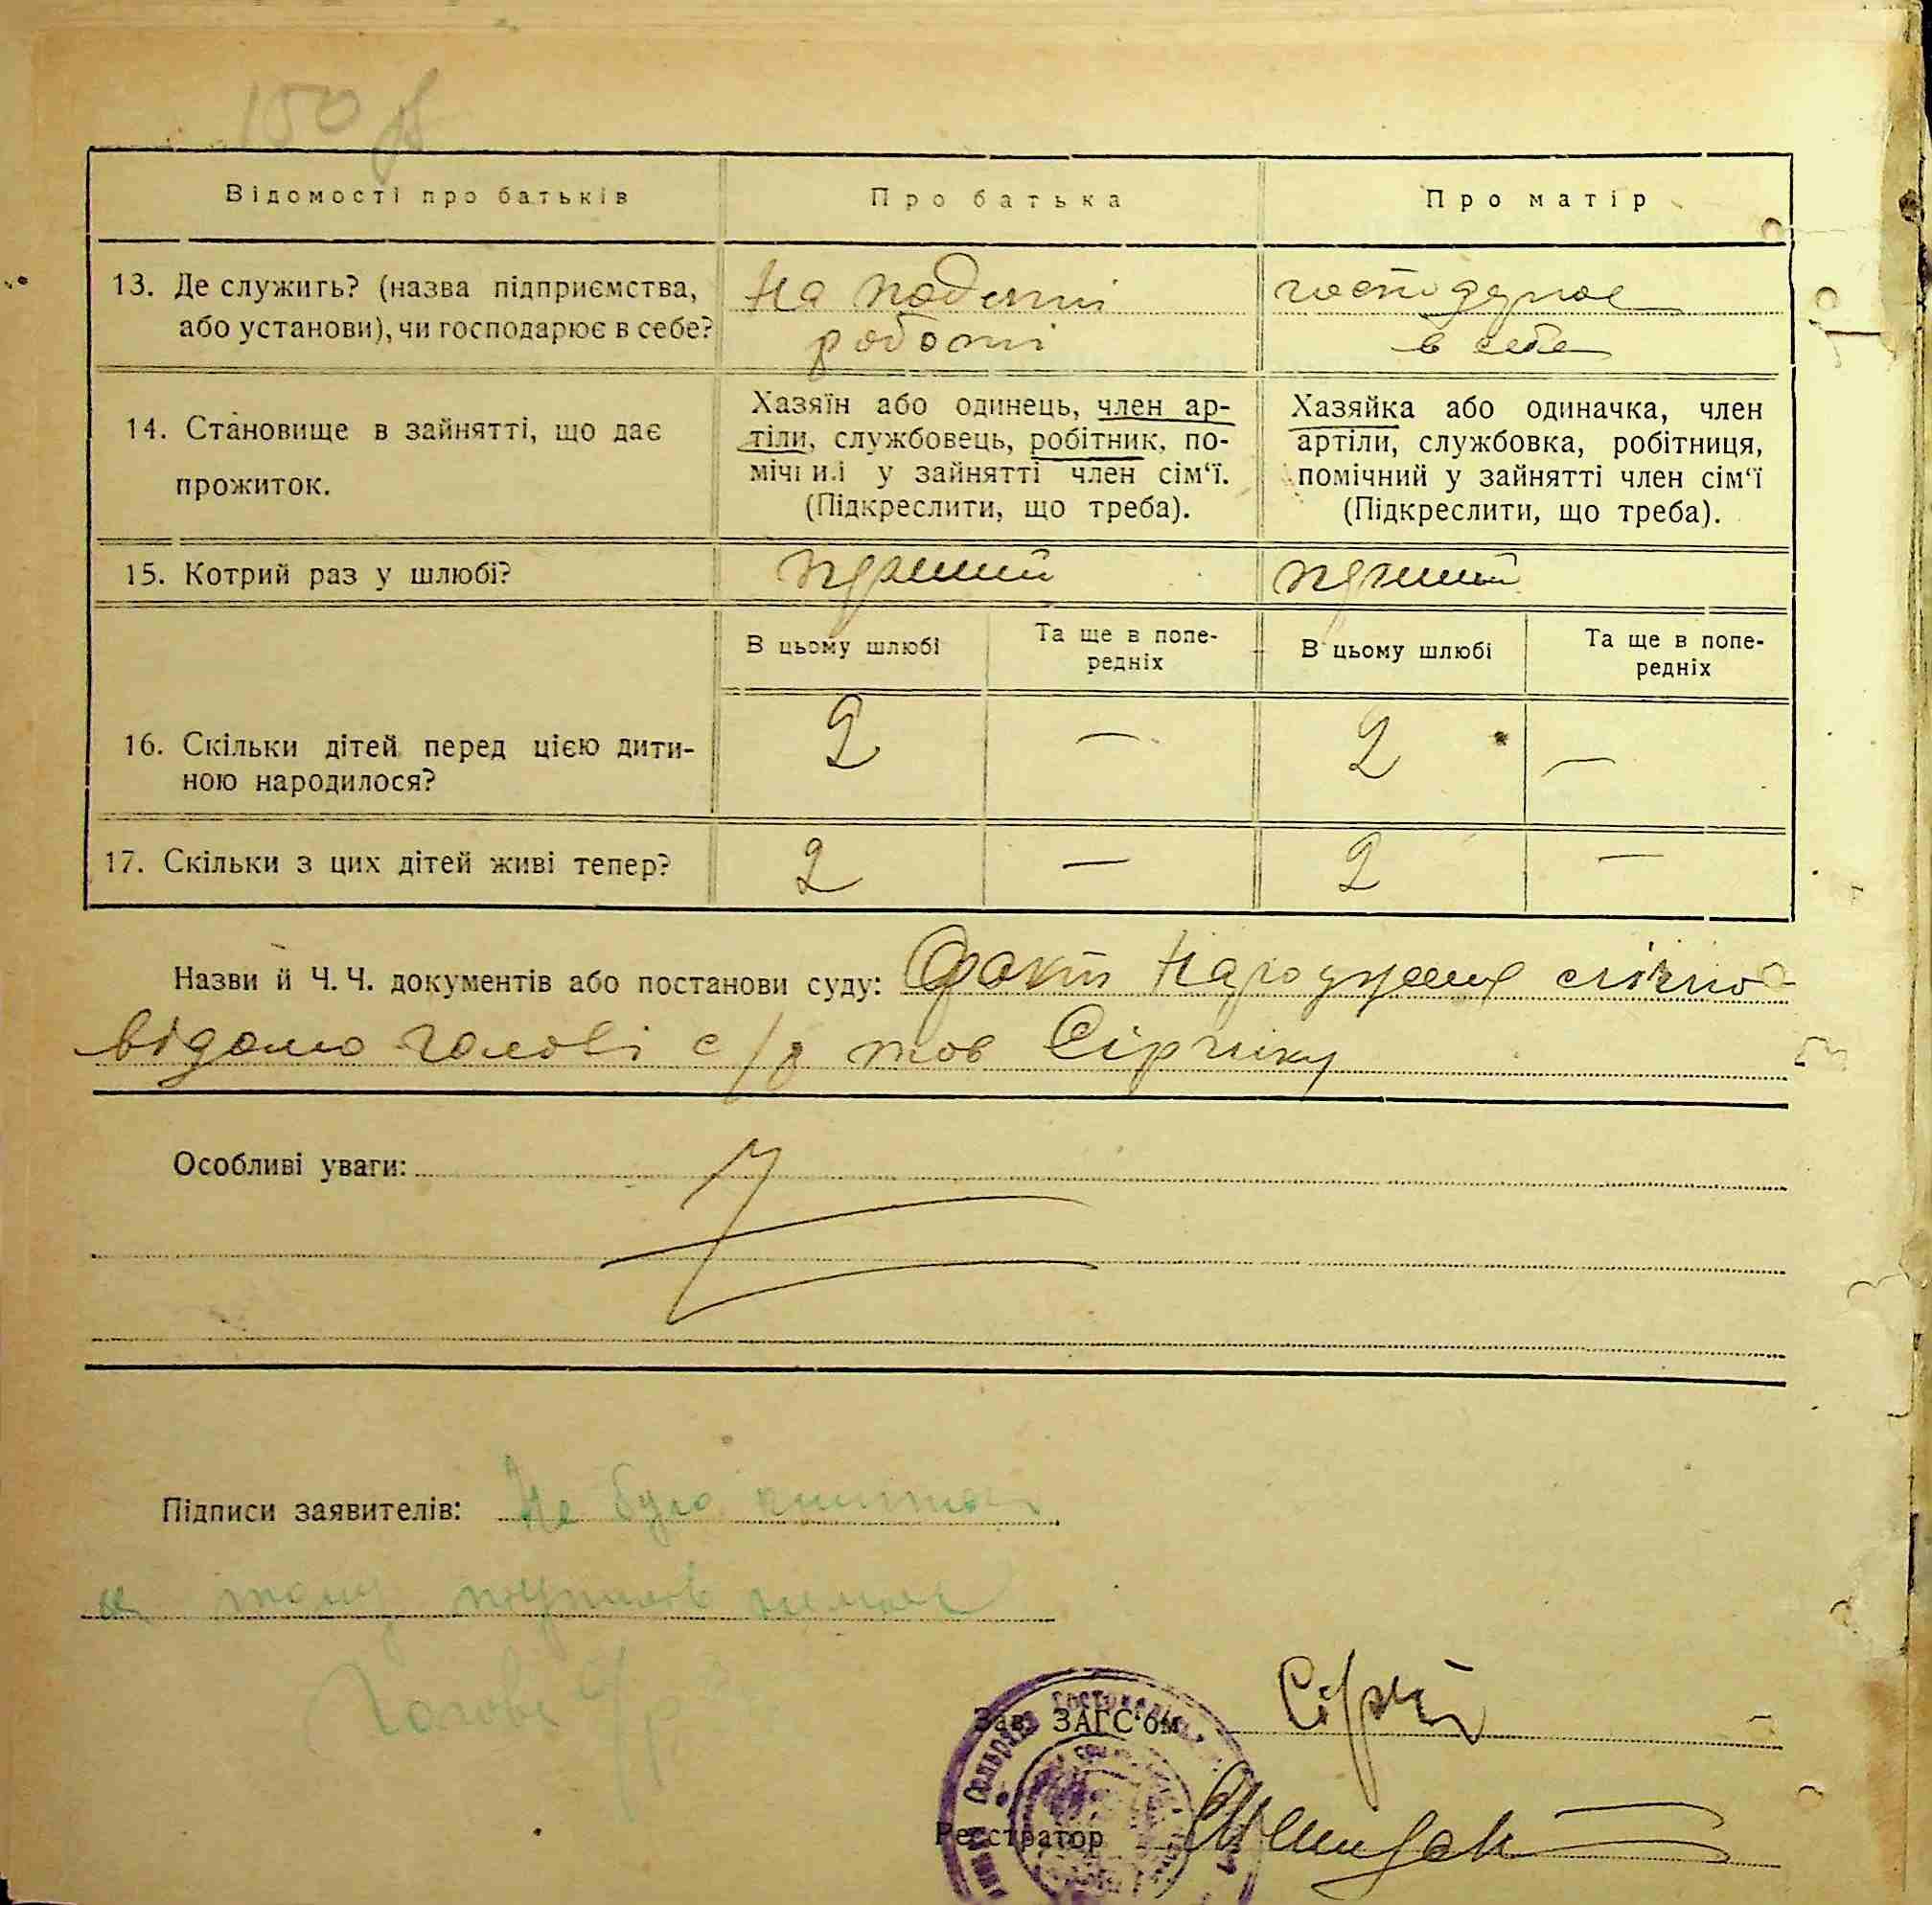 150
Відомості про батьків
Про батька
Про матір
13. Де служить? (назва підприємства,
або установи), чи господарює в себе?
На поденні
роботі
господарює
в себе
14. Становище в зайнятті, що дає
прожиток.
Хазяїн або одинець, член ар-
тіли, службовець, робітник, по-
мічний у зайнятті член сім'ї.
(Підкреслити, що треба).
Хазяйка або одиначка, член
артіли, службовка, робітниця,
помічний у зайнятті член сім'ї
(Підкреслити, що треба).
15. Котрий раз у шлюбі?
перший
перший
В цьому шлюбі
Та ще в попе-
редніх
В цьому шлюбі
Та ще в попе-
редніх
16. Скільки дітей перед цією дити-
ною народилося?
2 — 2 —
17. Скільки з цих дітей живі тепер?
2 — 2 —
Назви й Ч. Ч. документів або постанови суду: Факт народження
відомо голові с/р тов Сірчіку
Особливі уваги:
Підписи заявителів: Не було
тому
Голова с/р
Зав. ЗАГС'ом
Реєстратор